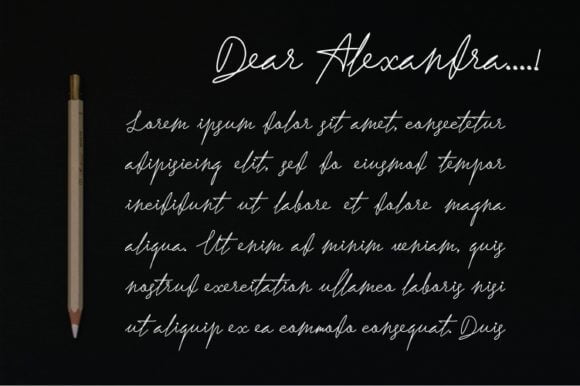 Dear Alexandra....!
Lorem ipsum dolor sit amet, consectetur
adipisicing elit, sed do eiusmod tempor
incididunt ut labore et dolore magna
aliqua. Ut enim ad minim veniam, quis
nostrud exercitation ullamco laboris nisi
ut aliquip ex ea commodo consequat. Duis